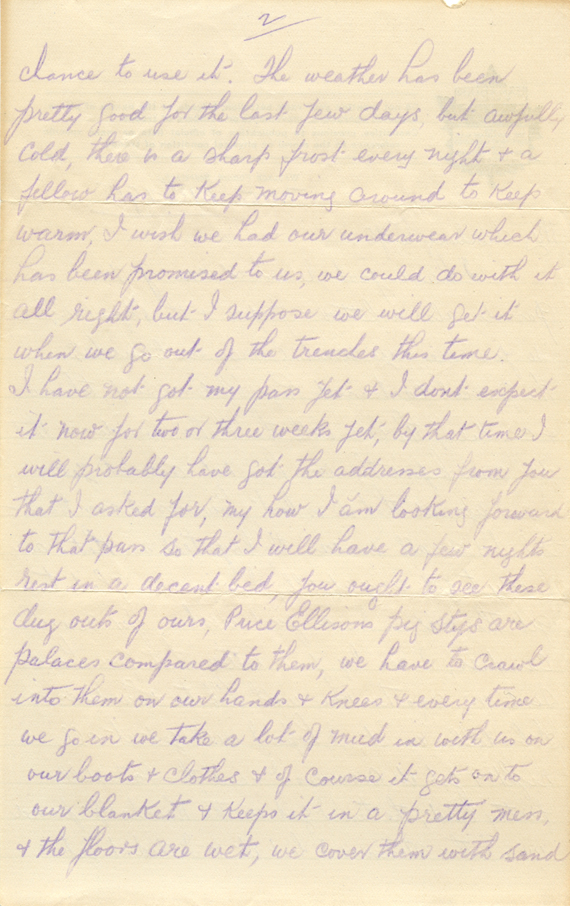 2
chance to use it. The weather has been
pretty good for the last few days, but awfully
cold, there is a sharp frost every night & a
fellow has to keep moving around to keep
warm, I wish we had our underwear which
has been promised to us, we could do with it
all right, but I suppose we will get it
when we go out of the trenches this time.
I have not got my pass yet & I dont expect
it now for two or three weeks yet, by that time I
will probably have got the addresses from you
that I asked for, my how I am looking forward
to that pass so that I will have a few nights
rest in a decent bed, you ought to see these
dug outs of ours, Price Ellisons pig stys are
palaces compared to them, we have to crawl
into them on our hands & knees & every time
we go in we take a lot of mud in with us on
our boots & clothes & of course it gets on to
our blanket & keeps it in a pretty mess,
& the floors are wet, we cover them with sand